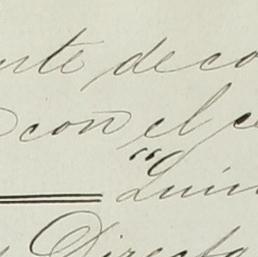 nte de co
con el ce
"Luin
Directo